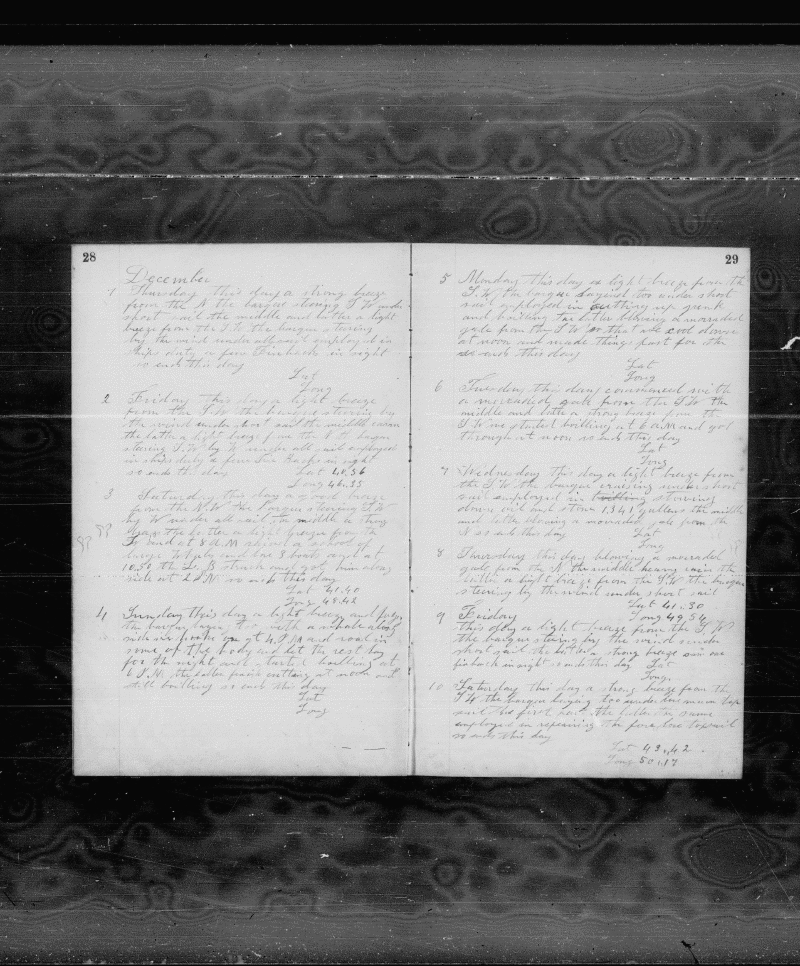 28
December
1 Thursday this day a strong breeze
from the N the barque steering S W under
short sail the middle and latter a light
breeze from the S W the barque steering
by the wind under all sail employed in
ships duty a few Finback in sight
so ends this day
Lat
Long
2 Friday this day a light breeze
from the S W the barque steering by
the wind under short sail the middle calm
the latter a light breeze from the N the barque
steering S W by W under all sail employed
in ships duty a few Fin Backs in sight
so ends the day Lat 40.36
Long 46.35
3 Saturday this day a good breeze
from the N.W the barque steering S W
by W under all sail the middle a strong
breeze the latter a light breeze from the
at 8 A M raised a school of
large Whales lowered 3 boats and at
10.30 the L. B struck and got him along
side at 2 P M so ends this day
Lat 41.40
Long 48.42
4 Sunday this day a light breeze and
the barque with a whale along
side at 4 P M and
some of the body and let the rest lay
for the night and started boiling at
6 P.M. the latter finis cutting at noon and
still boiling so ends this day
Lat
Long
29
5 Monday this day a light breeze from the
S. W the barque under short
sail employed in cutting up junk
and boiling the latter blowing a moraded
gale from the S W so that we cool down
at noon and made things fast for the
so ends this day
Lat
Long
6 Tuesday this day commenced with
a moraded gale from the S W the
middle and latter a strong breeze from the
S W we started boiling at 6 A M and got
through at noon so ends this day
Lat
Long
7 Wednesday this day a light breeze from
the S W the barque cruising under short
sail employed in stowing
down oil and stown 1,341 gallons the middle
and latter blowing a moraded gale from the
N so ends this day Lat
Long
8 Thursday this day blowing a moraded
gale from the N the middle heavy rain the
latter a light breeze from the S.W the barque
steering by the wind under short sail
Lat 41.30
9 Friday Long 49.54
this day a light breeze from the S W
the barque steering by the wind under
short sail the latter a strong breeze saw one
finback in sight so ends this day Lat
Long.
10 Saturday this day a strong breeze from the
S W the barque laying too under main top
sail the first part the latter the same
employed in repairing the fore topsail
so ends this day
Lat 42.42.
Long 50.17